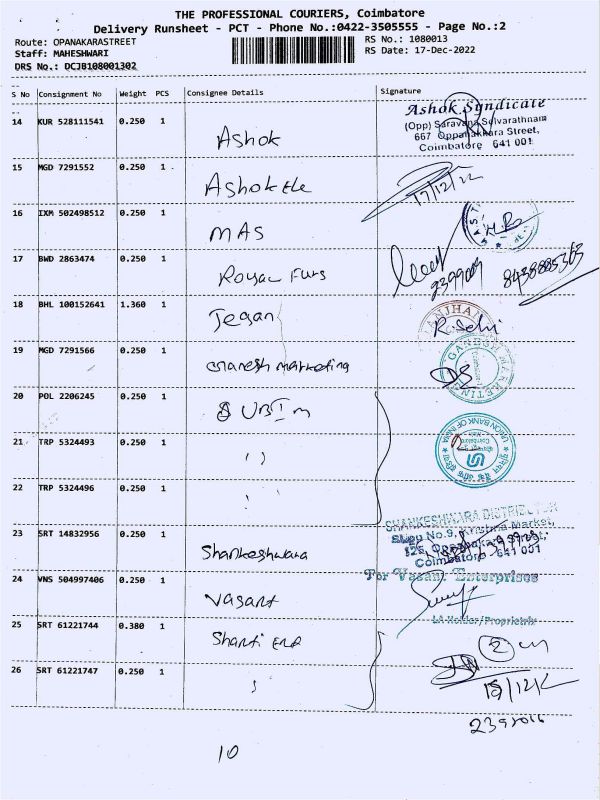 THE PROFESSIONAL COURIERS, Coimbatore
Delivery Runsheet - PCT - Phone No.:0422-3505555 - Page No.:2
Route: OPANAKARASTREET
RS No.: 1080013
Staff: MAHESHWARI
RS Date: 17-Dec-2022
DRS No.: DCJB108001302
S No Consignment No Weight PCS Consignee Details Signature
14 KUR 528111541 0.250 1 Ashok
Ashok Syndicate
(Opp) Saravana Selvarathnam
667 Oppanakkara Street,
Coimbatore 641 001
15 MGD 7291552 0.250 1 Ashok Ele 17/12/22
16 IXM 502498512 0.250 1 MAS
17 BWD 2863474 0.250 1 Royal Furs
18 BHL 100152641 1.360 1 Jegan
19 MGD 7291566 0.250 1 Ganesh marketing
GANESH MARKETING
20 POL 2206245 0.250 1 UBI m
21 TRP 5324493 0.250 1 ''
UNION BANK OF INDIA
22 TRP 5324496 0.250 1 ''
23 SRT 14832956 0.250 1 Shankeshwara
SHANKESHWARA DISTRIBUTOR
Shop No.9, Krishna Market,
125, Oppanakara Street,
Coimbatore 641 001
24 VNS 504997406 0.250 1 Vasant
For Vasant Enterprises
25 SRT 61221744 0.380 1 Shanti Ent
26 SRT 61221747 0.250 1
10